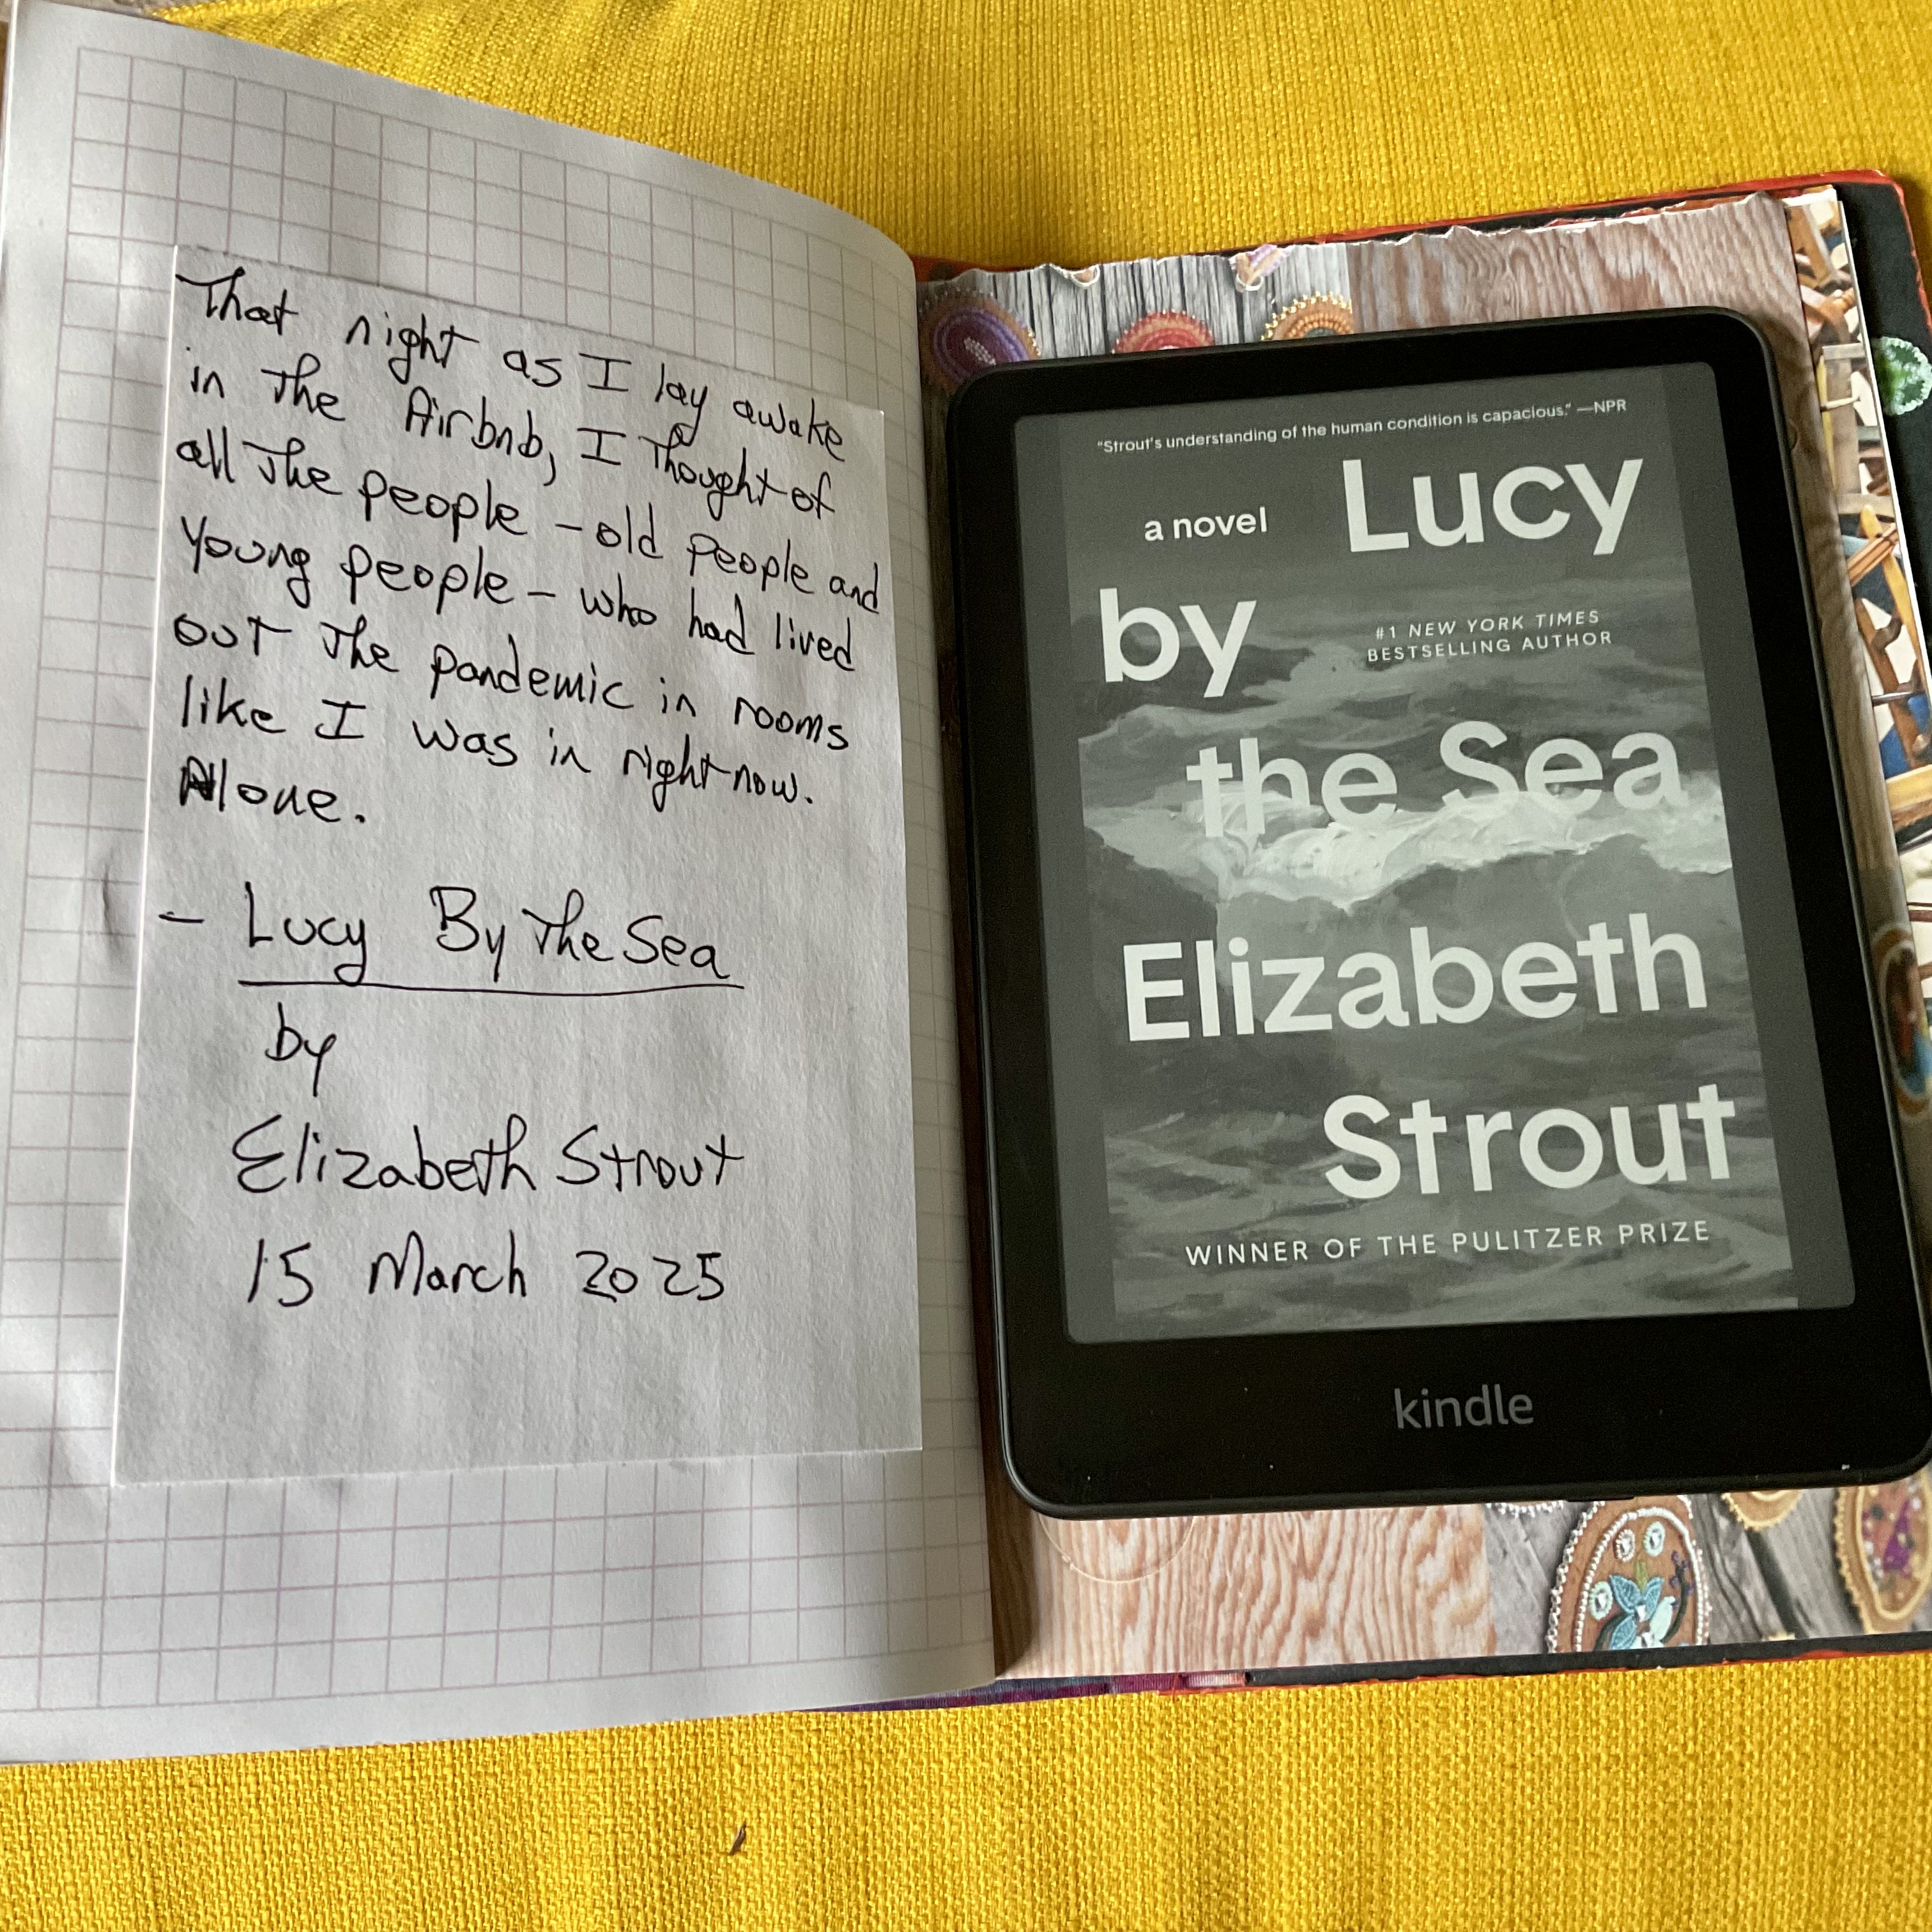 That night as I lay awake
in the Airbnb, I thought of
all the people – old people and
young people – who had lived
out the pandemic in rooms
like I was in right now.
Alone.
– Lucy By The Sea
by
Elizabeth Strout
15 March 2025
"Strout's understanding of the human condition is capacious." —NPR
a novel Lucy
by
#1 NEW YORK TIMES
BESTSELLING AUTHOR
the Sea
Elizabeth
Strout
WINNER OF THE PULITZER PRIZE
kindle